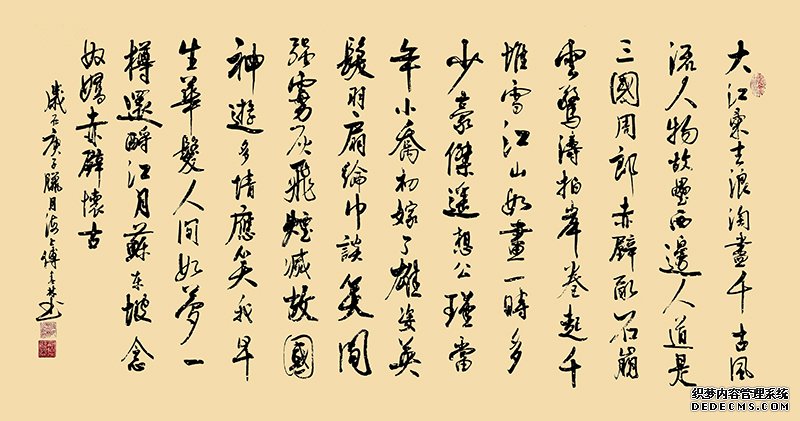 大江東去浪淘盡千古風
流人物故壘西邊人道是
三國周郎赤壁亂石崩
雲驚濤拍岸卷起千
堆雪江山如畫一時多
少豪傑遙想公瑾當
年小喬初嫁了雄姿英
髮羽扇綸巾談笑間
强虜灰飛煙滅故國
神遊多情應笑我早
生華髮人間如夢一
樽還酹江月蘇东坡念
奴嬌赤壁懷古
歲在庚子臘月海上傅喜林书
织梦内容管理系统
DEDECMS.COM